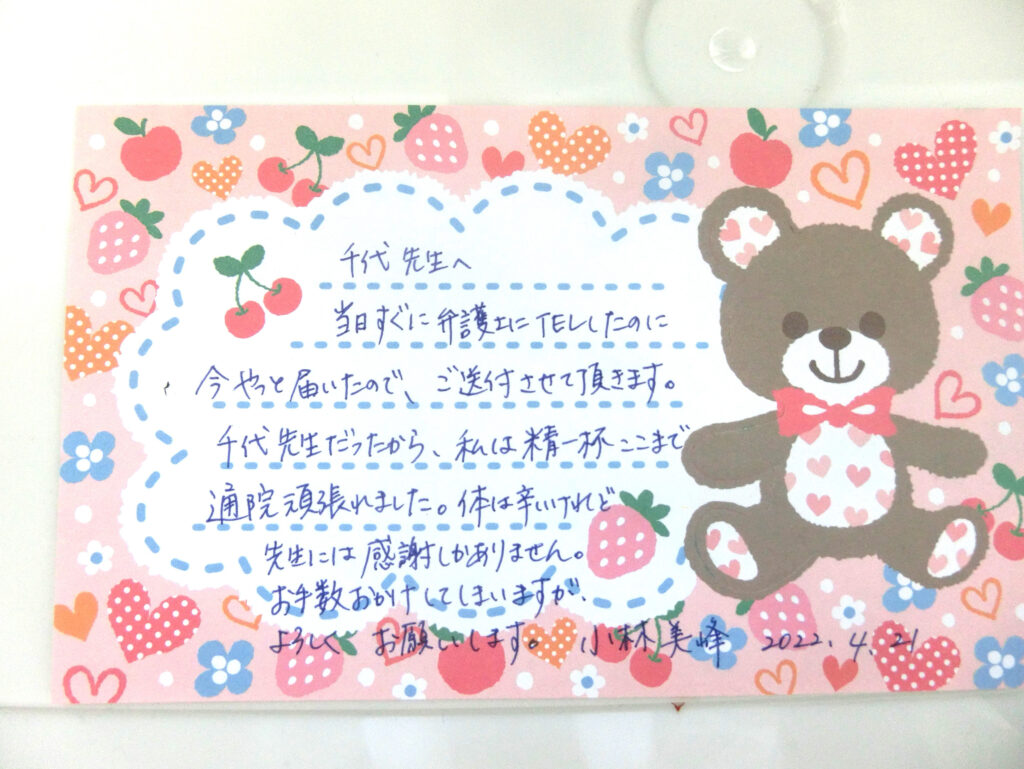 千代先生へ
当日すぐに弁護士にTELしたのに
今やっと届いたので、ご送付させて頂きます。
千代先生だったから、私は精一杯ここまで
通院頑張れました。体は辛いけれど
先生には感謝しかありません。
お手数おかけしてしまいますが、
よろしくお願いします。 小林美峰 2022.4.21